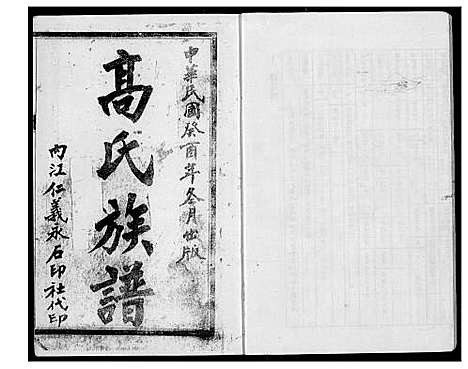 中華民國癸酉年冬月出版
髙氏族譜
內江仁義永石印社代印